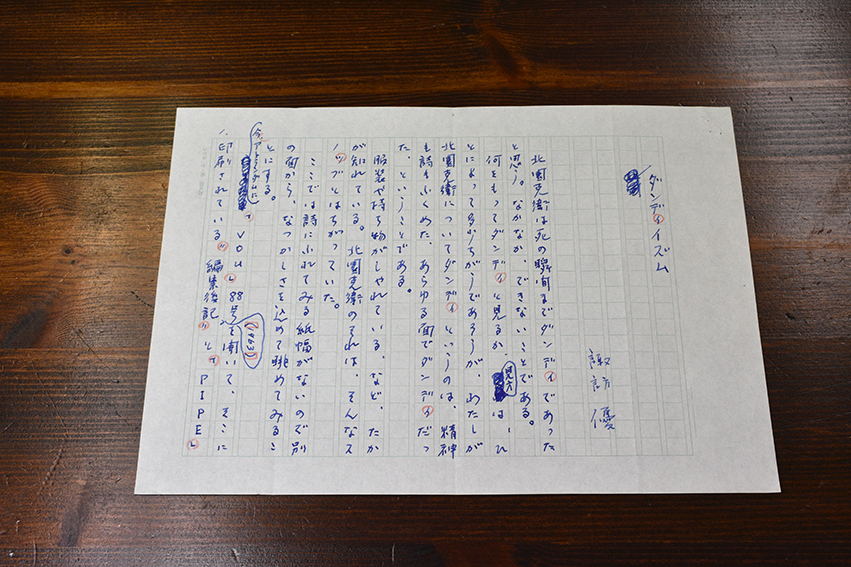 ダンディイズム
諏訪優
北園克衛は死の瞬間までダンディであった
と思う。なかなか、できないことである。
何をもってダンディと見るか、見方は、ひ
とによって多少ちがうであろうが、わたしが
北園克衛についてダンディというのは、精神
も詩もふくめた、あらゆる面でダンディだっ
た、ということである。
服装や持ち物がしゃれている、など、たか
が知れている。北園克衛のそれは、そんなス
ノッブとはちがっていた。
ここでは詩にふれてみる紙幅がないので別
の面から、なつかしさを込めて眺めてみるこ
とにする。
今、アトランダムに『VOU』88号(1963)を開いて、そこに
印刷されている"編集後記"と『PIPE』